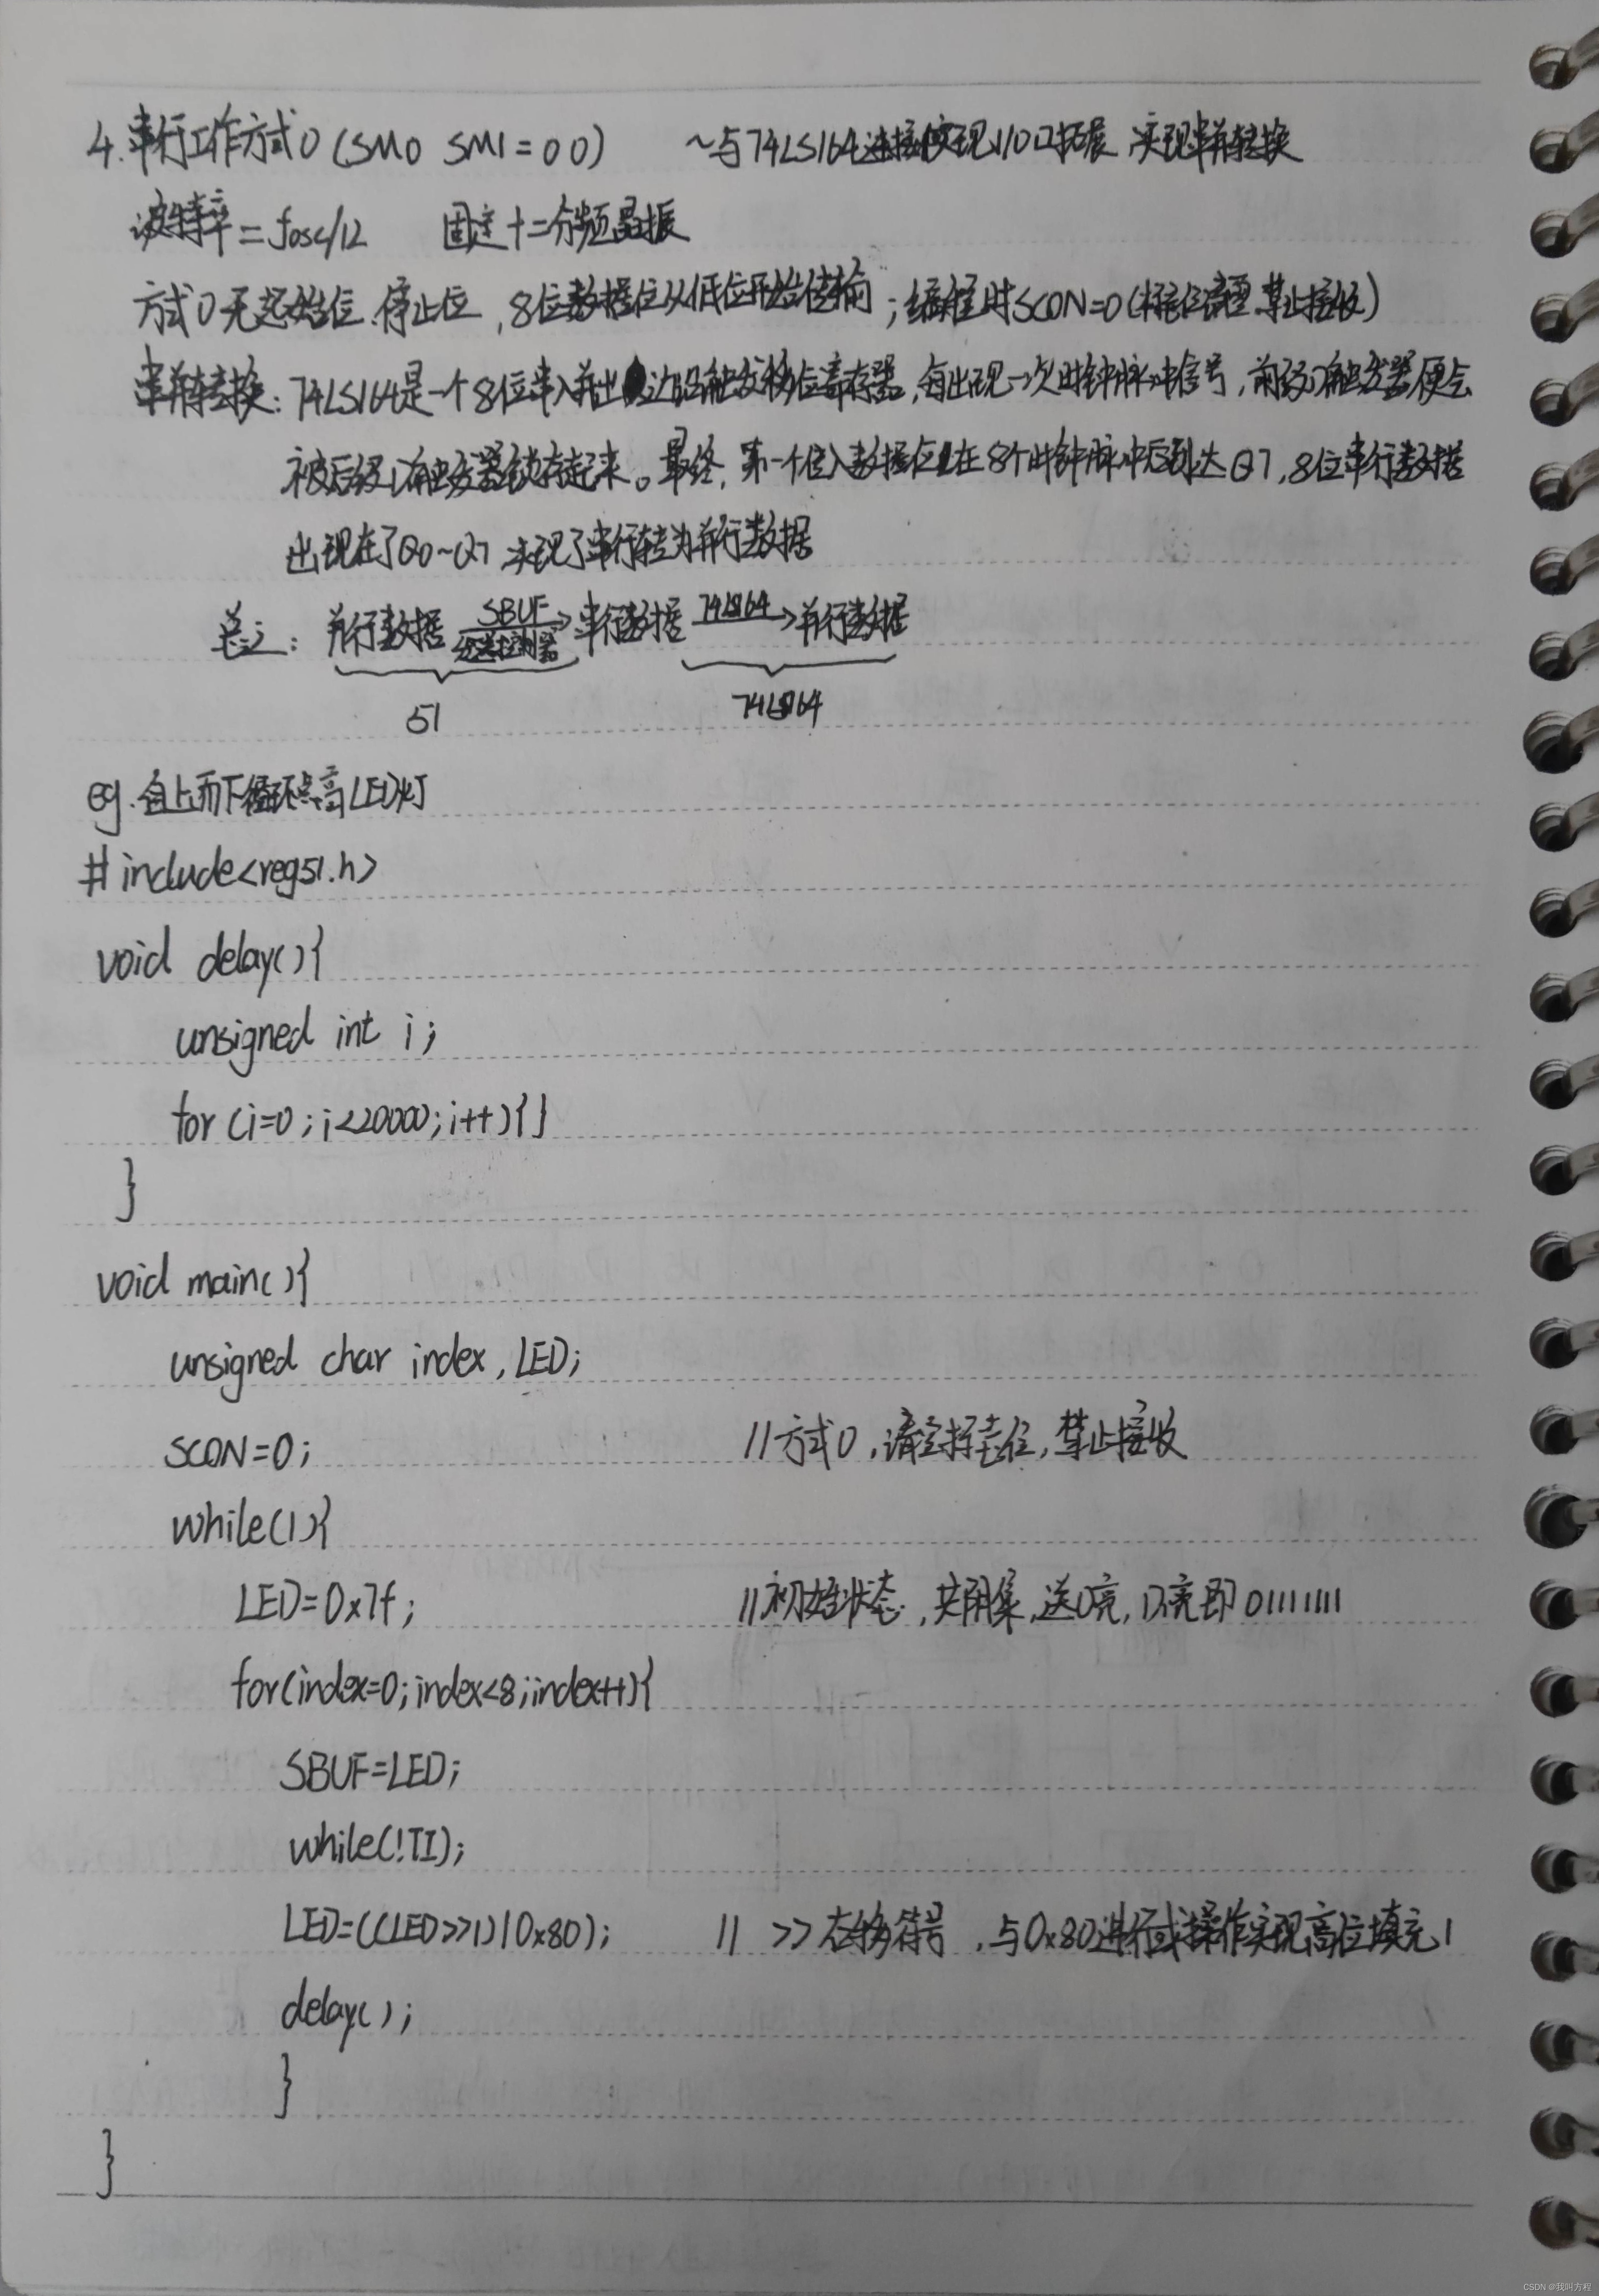 4.串行工作方式0(SM0 SM1=00) ~与74LS164连接实现I/O口拓展,实现串并转换
波特率=fosc/12 固定十二分频晶振
方式0无起始位、停止位,8位数据位从低位开始传输;编程时SCON=0(标志位清零,禁止接收)
串并转换:74LS164是一个8位串入并出边沿触发移位寄存器,每出现一次时钟脉冲信号,前级D触发器便会
被后级D触发器锁存起来。最终,第一个位入数据位在8个时钟脉冲后到达Q7,8位串行数据
出现在了Q0~Q7,实现了串行转为并行数据
总之:并行数据 SBUF 串行数据 74LS164 并行数据
发送控制器
51 74LS164
eg.自上而下循环点亮LED灯
#include<reg51.h>
void delay(){
unsigned int i;
for(i=0;i<20000;i++){}
}
void main(){
unsigned char index,LED;
SCON=0; //方式0,清空标志位,禁止接收
while(1){
LED=0x7f; //初始状态,共阴集,送0亮,D7亮即01111111
for(index=0;index<8;index++){
SBUF=LED;
while(!TI);
LED=((LED>>1)|0x80); // >>右移符号,与0x80进行或操作实现高位填充1
delay();
}
}
CSDN @我叫方程